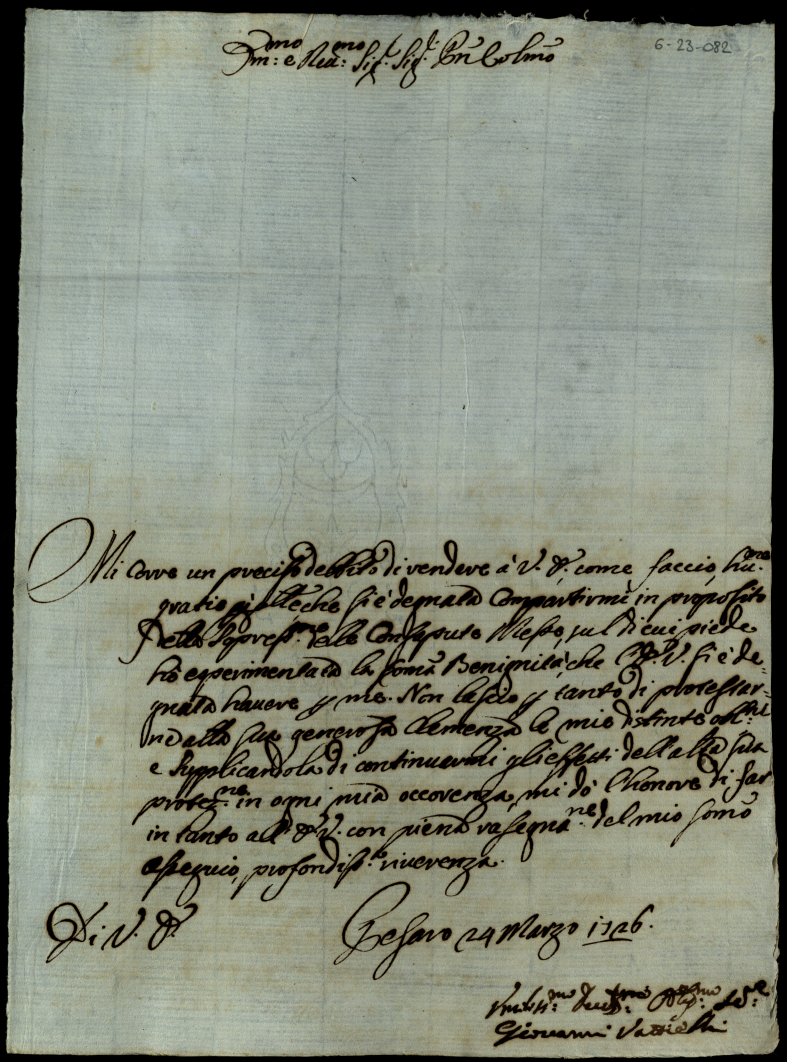 6-23-082
Em:mo e Reu:mo Sig.r Sig.r Pñ Colmo
Mi corre un preciso debbito di rendere à V. E. come faccio, hu:me
gratie che si è degnata compartirmi in proposito
delle delle Consapute Messe, sul di cui piede
hò esperimentata la somã Benignità, che V. E. si è de-
gnata hauere p me. Non lascio p tanto di protestar-
ne alla sua generosa Clemenza le mie distinte obb:ni
e supplicandola di continuarmi gli effetti dell'alta sua
protez:ne in ogni mia occorenza, mi dò l'honore di far
in tanto all' E. V. con piena rasegna:ne del mio somõ
ossequio, profondiss.a riverenza.
Di V. E.
Pesaro 24 Marzo 1726.
Vmiliss:mo Deu:mo Obblig:mo Se:re
Giovanni Vattielli